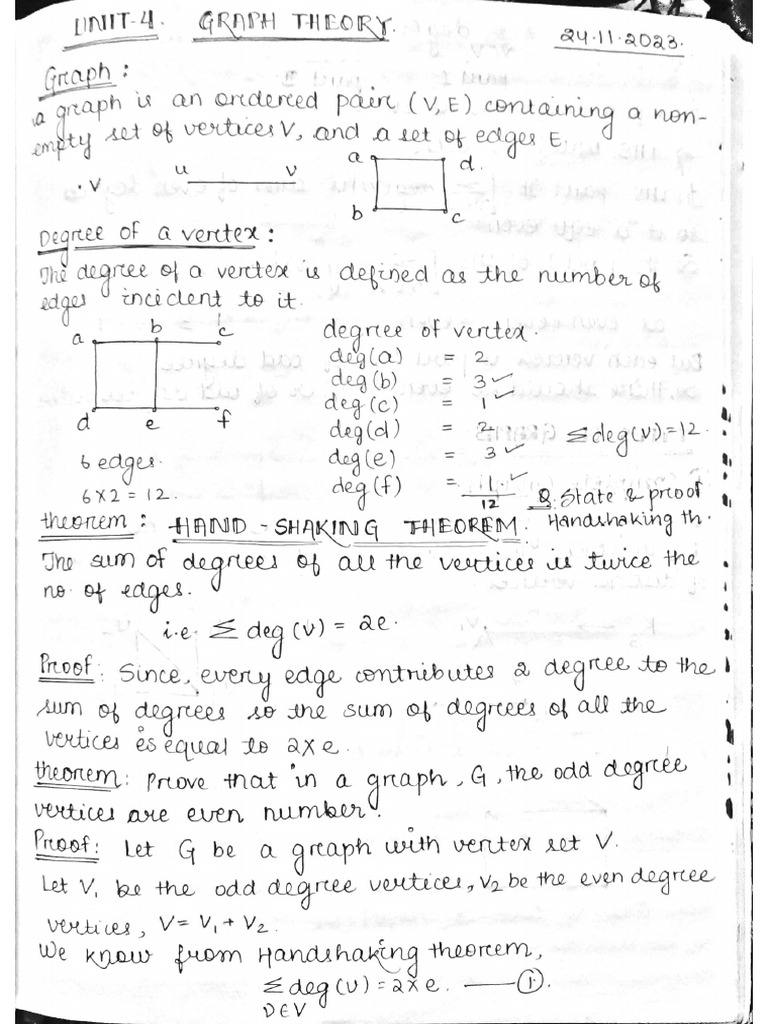 UNIT-4. GRAPH THEORY.
24.11.2023.
Graph:
a graph is an ordered pair (V, E) containing a non-
empty set of vertices V, and a set of edges E.
a d.
.v u v
b c
Degree of a vertex:
The degree of a vertex is defined as the number of
edges incident to it.
a b c
d e f
6 edges.
6 x 2 = 12.
degree of vertex.
deg(a) = 2
deg(b) = 3 ✓
deg(c) = 1 ✓
deg(d) = 2
deg(e) = 3 ✓
deg(f) = 1. ✓
12
Σdeg(v)=12.
Q. State & proof
Handshaking th.
theorem: HAND-SHAKING THEOREM.
The sum of degrees of all the vertices is twice the
no. of edges.
i.e. Σ deg (v) = 2e.
Proof: Since, every edge contributes 2 degree to the
sum of degrees so the sum of degrees of all the
vertices is equal to 2xe.
theorem: Prove that in a graph, G, the odd degree
vertices are even number.
Proof: Let G be a graph with vertex set V.
Let V₁ be the odd degree vertices, V₂ be the even degree
vertices, V = V₁ + V₂.
We know from Handshaking theorem,
Σ deg (v) = 2xe. —— ①.
DEV